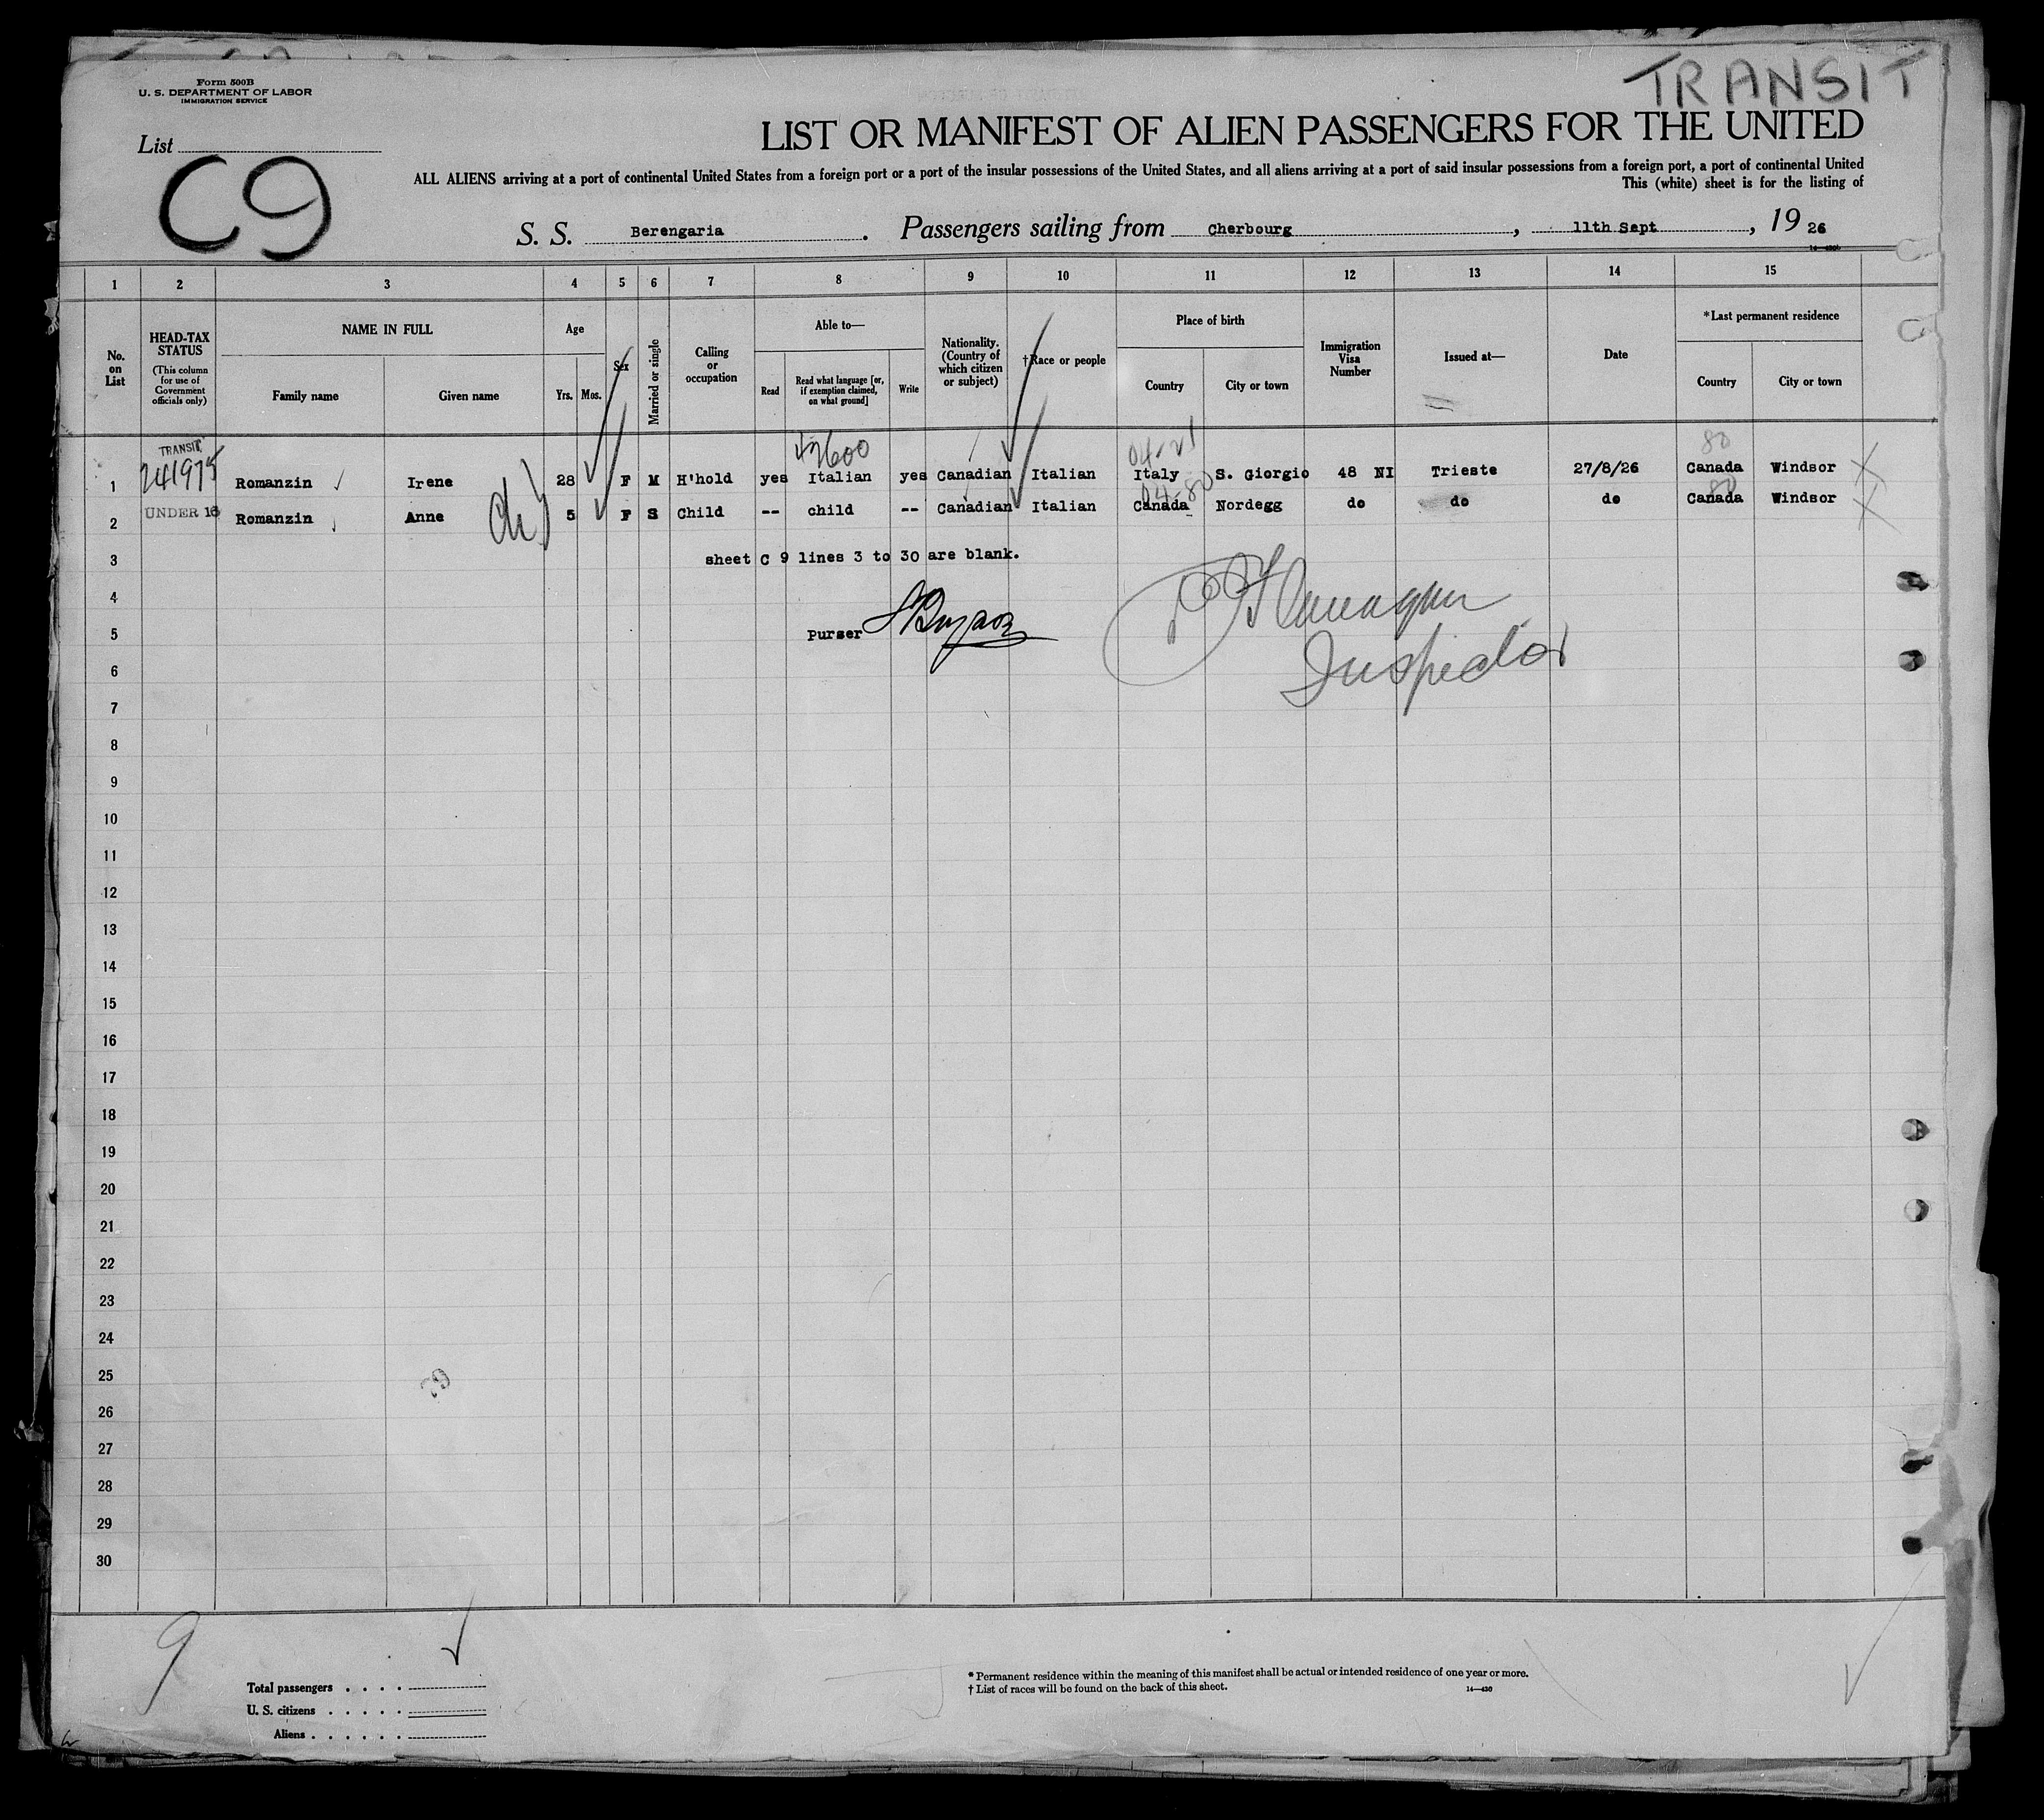 TRANSIT
Form 500B
U. S. DEPARTMENT OF LABOR
IMMIGRATION SERVICE
List
C9
LIST OR MANIFEST OF ALIEN PASSENGERS FOR THE UNITED
ALL ALIENS arriving at a port of continental United States from a foreign port or a port of the insular possessions of the United States, and all aliens arriving at a port of said insular possessions from a foreign port, a port of continental United
This (white) sheet is for the listing of
S. S. Berengaria. Passengers sailing from Cherbourg, 11th Sept, 19 26
1 2 3 4 5 6 7 8 9 10 11 12 13 14 15
No. on List
HEAD-TAX STATUS (This column for use of Government officials only)
NAME IN FULL
Family name
Given name
Age
Yrs.
Mos.
Sex
Married or single
Calling or occupation
Able to—
Read
Read what language [or, if exemption claimed, on what ground]
Write
Nationality. (Country of which citizen or subject)
†Race or people
Place of birth
Country
City or town
Immigration Visa Number
Issued at—
Date
*Last permanent residence
Country
City or town
TRANSIT
2600 04-21 80
1 241975 Romanzin Irene 28 F M H'hold yes Italian yes Canadian Italian Italy S. Giorgio 48 NI Trieste 27/8/26 Canada Windsor
04-80 80
2 UNDER 16 Romanzin Anne 5 F S Child -- child -- Canadian Italian Canada Nordegg do do do Canada Windsor
3 sheet C 9 lines 3 to 30 are blank.
4
5 Purser
Inspector
6
7
8
9
10
11
12
13
14
15
16
17
18
19
20
21
22
23
24
25
26
27
28
29
30
9
Total passengers . . . .
U. S. citizens . . . . .
Aliens . . . . . .
* Permanent residence within the meaning of this manifest shall be actual or intended residence of one year or more.
† List of races will be found on the back of this sheet.
14—430